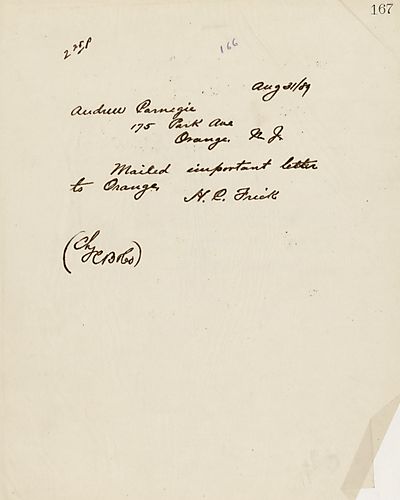 167
166
2 25 P
Aug 31/89
Andrew Carnegie
175 Park Ave
Orange, N. J.
Mailed important letter
to Orange,
H. C. Frick
(Chg
HCFCo)